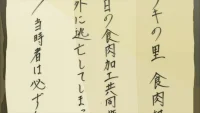 ツキの里 食肉組
日の食肉加工共同
外に逃亡してしまっ
当時者は必ず